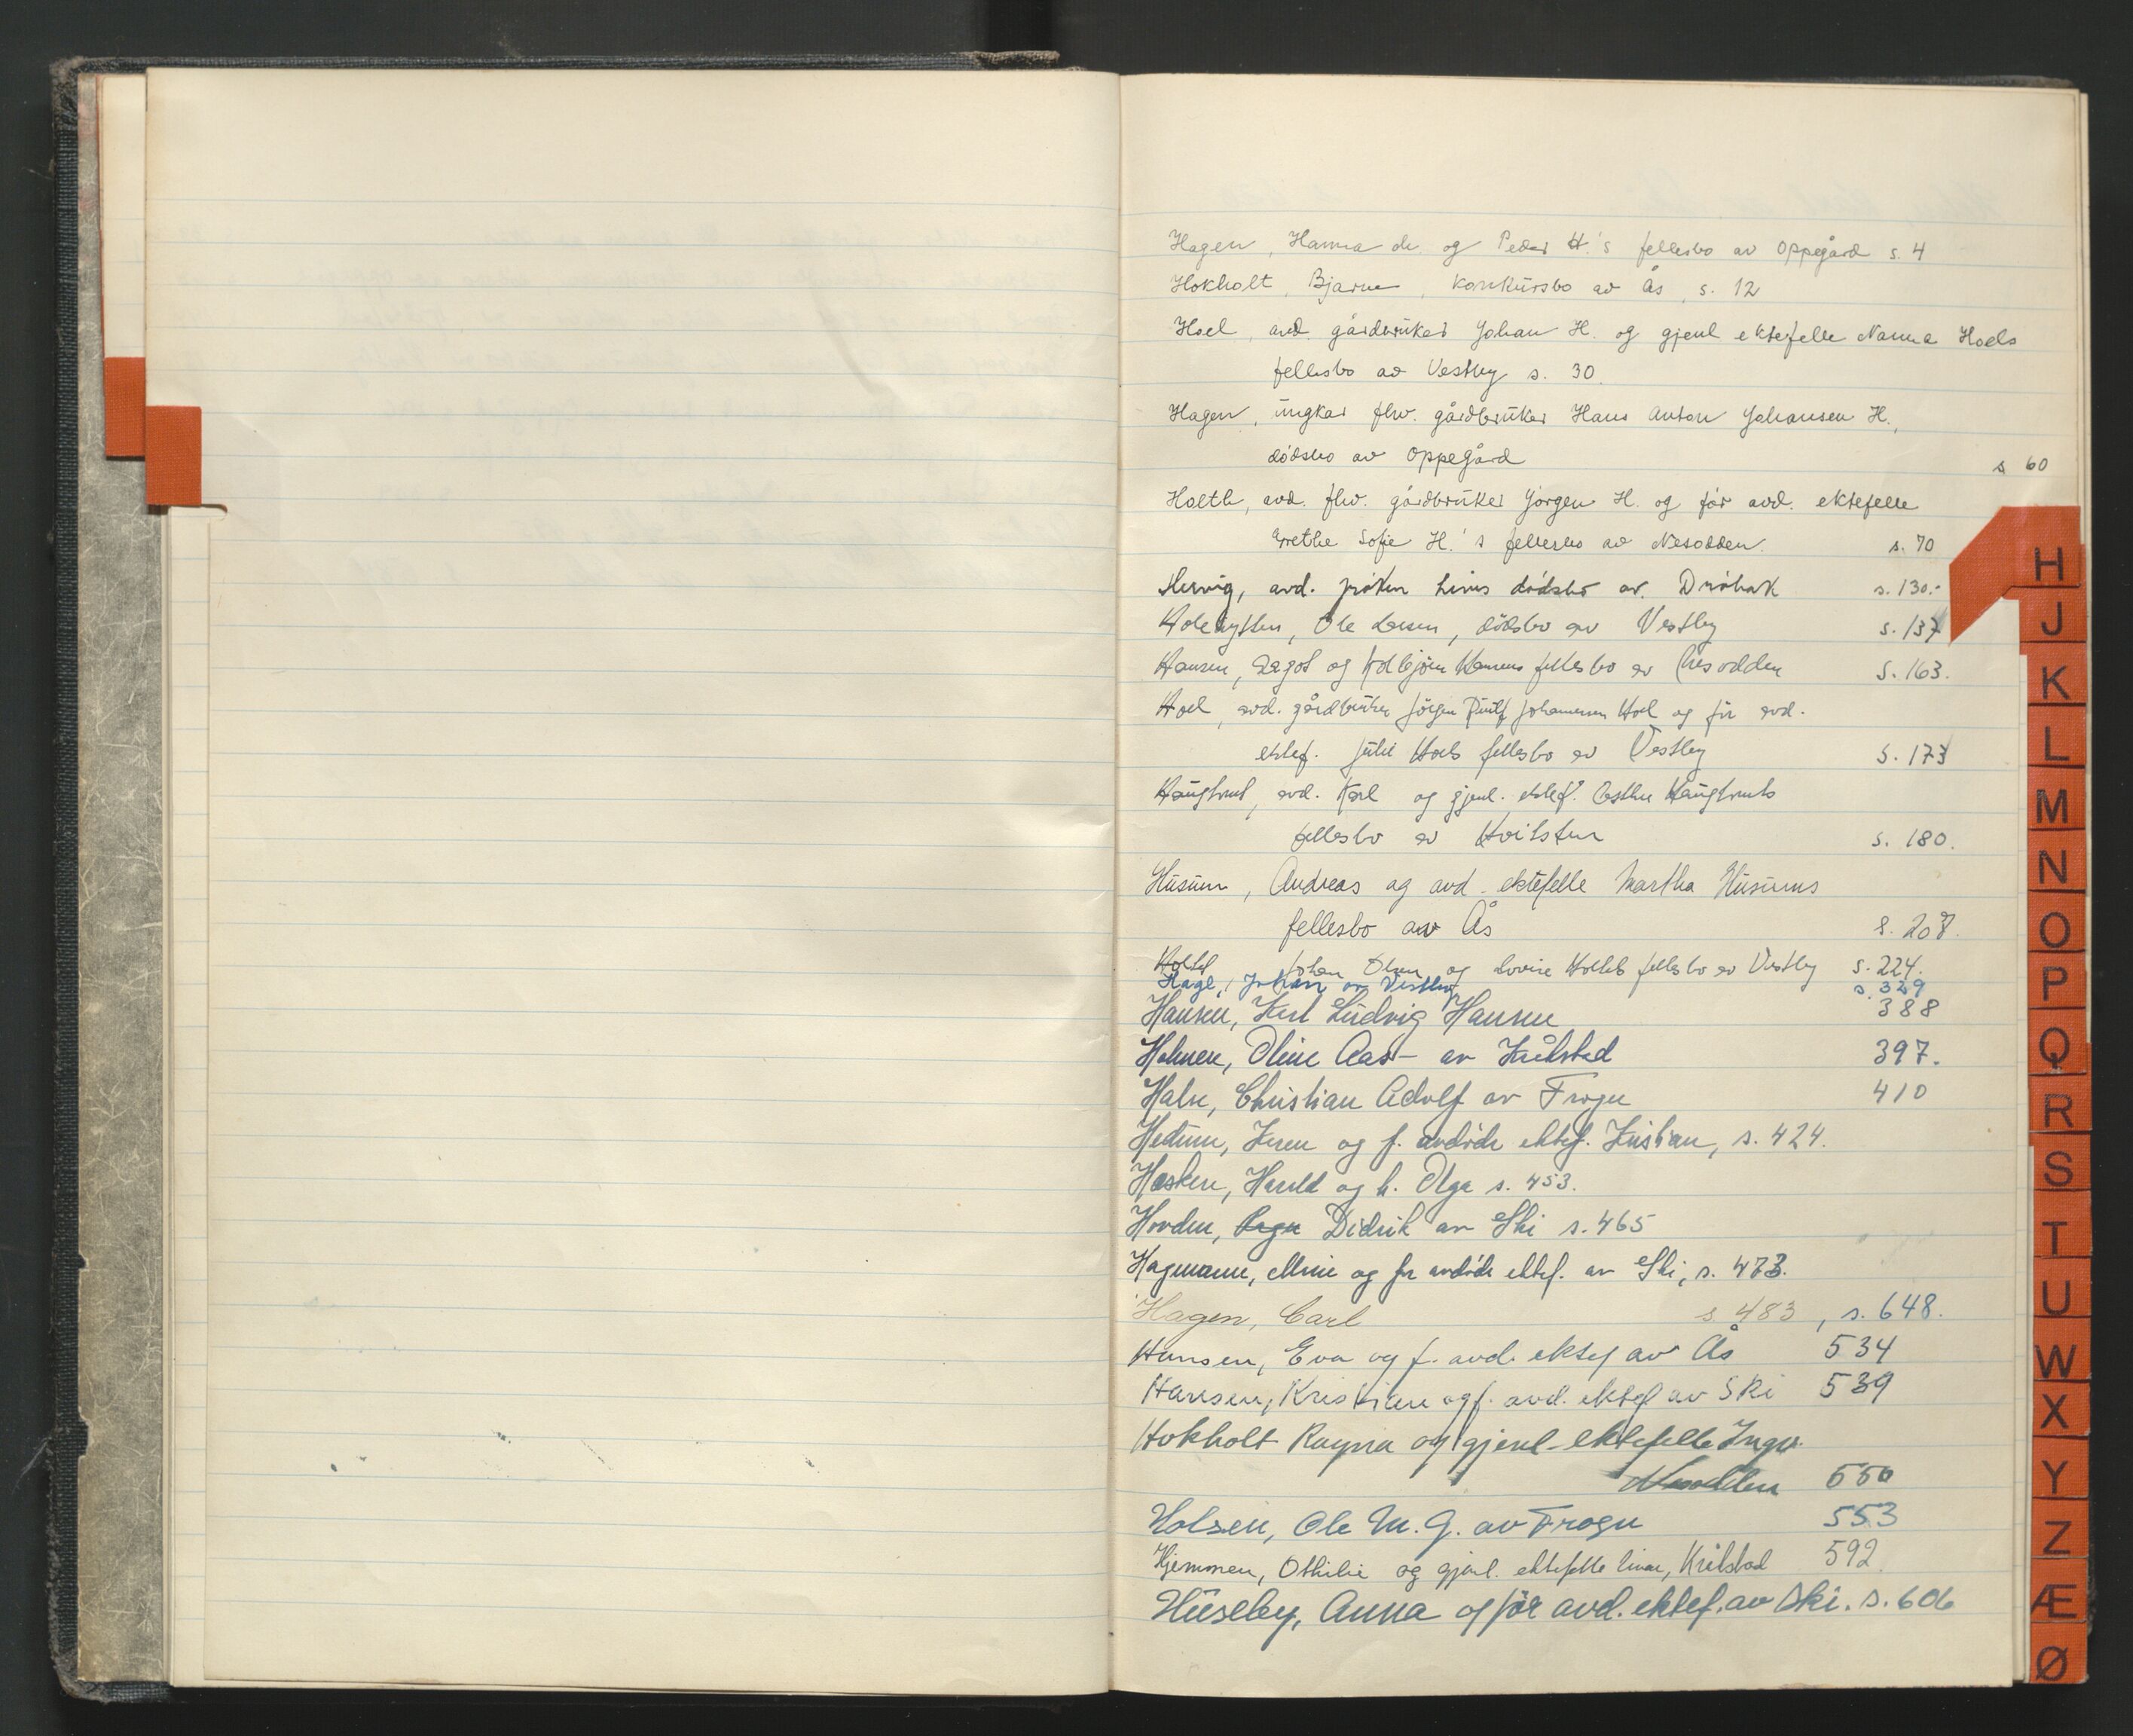 Hagen, Hanna de. og Peder H.'s fellesbo av Oppegård s. 4
Hokholt, Bjarne, konkursbo av Ås, s. 12
Hoel, avd. gårdbruker Johan H. og gjenl ektefelle Nanna Hoels
fellesbo av Vestby s. 30.
Hagen, ungkar fhv. gårdbruker Hans Anton Johansen H.,
dødsbo av Oppegård s 60
Holth, avd. fhv. gårdbruker Jørgen H. og før avd. ektefelle
Grethe Sofie H.'s fellesbo av Nesodden. s. 70
Hervig, avd. frøken Livis dødsbo av. Drøbak s. 130.-
Holehytten, Ole Larsen, dødsbo av Vestby s. 137
Hansen, Dagot og Kolbjørn Hansens fellesbo av Nesodden s. 163.
Hoel, avd. gårdbruker Jørgen Rudolf Johannesen Hoel og før avd.
ektef. Julie Hoels fellesbo av Vestby s. 173
avd. Karl og gjenl. ektef. Østbu
fellesbo av Hvitsten s. 180.
Husum, Andreas og avd. ektefelle Martha Husums
fellesbo av Ås s. 208.
Holtet Johan Olsen og Lovise Holtets fellesbo av Vestby s. 224.
Hage, Johan av Vestby s. 329
Hansen, Karl Ludvig Hansen 388
Holmen, Oline Aas- av Kråkstad 397.
Halse, Christian Adolf av Frogn 410
Hedum, Karen og f. avdøde ektef. Kristian, s. 424.
Hasken, Harald og h. Olga s. 453.
Hovden, Didrik av Ski s. 465
Hagemann, Mine og før avdøde ektef. av Ski, s. 473.
Hagen, Carl s. 483, s. 648.
Hansen, Eva og f. avd. ektef av Ås 534
Hansen, Kristian og f. avd. ektef av Ski 539
Hokholt Ragna og gjenl. ektefelle Ingv.
Nesodden 550
Holsen, Ole M. G. av Frogn 553
Hjemmen, Othilie og gjenl. ektefelle Einar, Kråkstad 592.
Huseby, Anna og før avd. ektef. av Ski. s. 606
H
J
K
L
M
N
O
P
Q
R
S
T
U
W
X
Y
Z
Æ
Ø